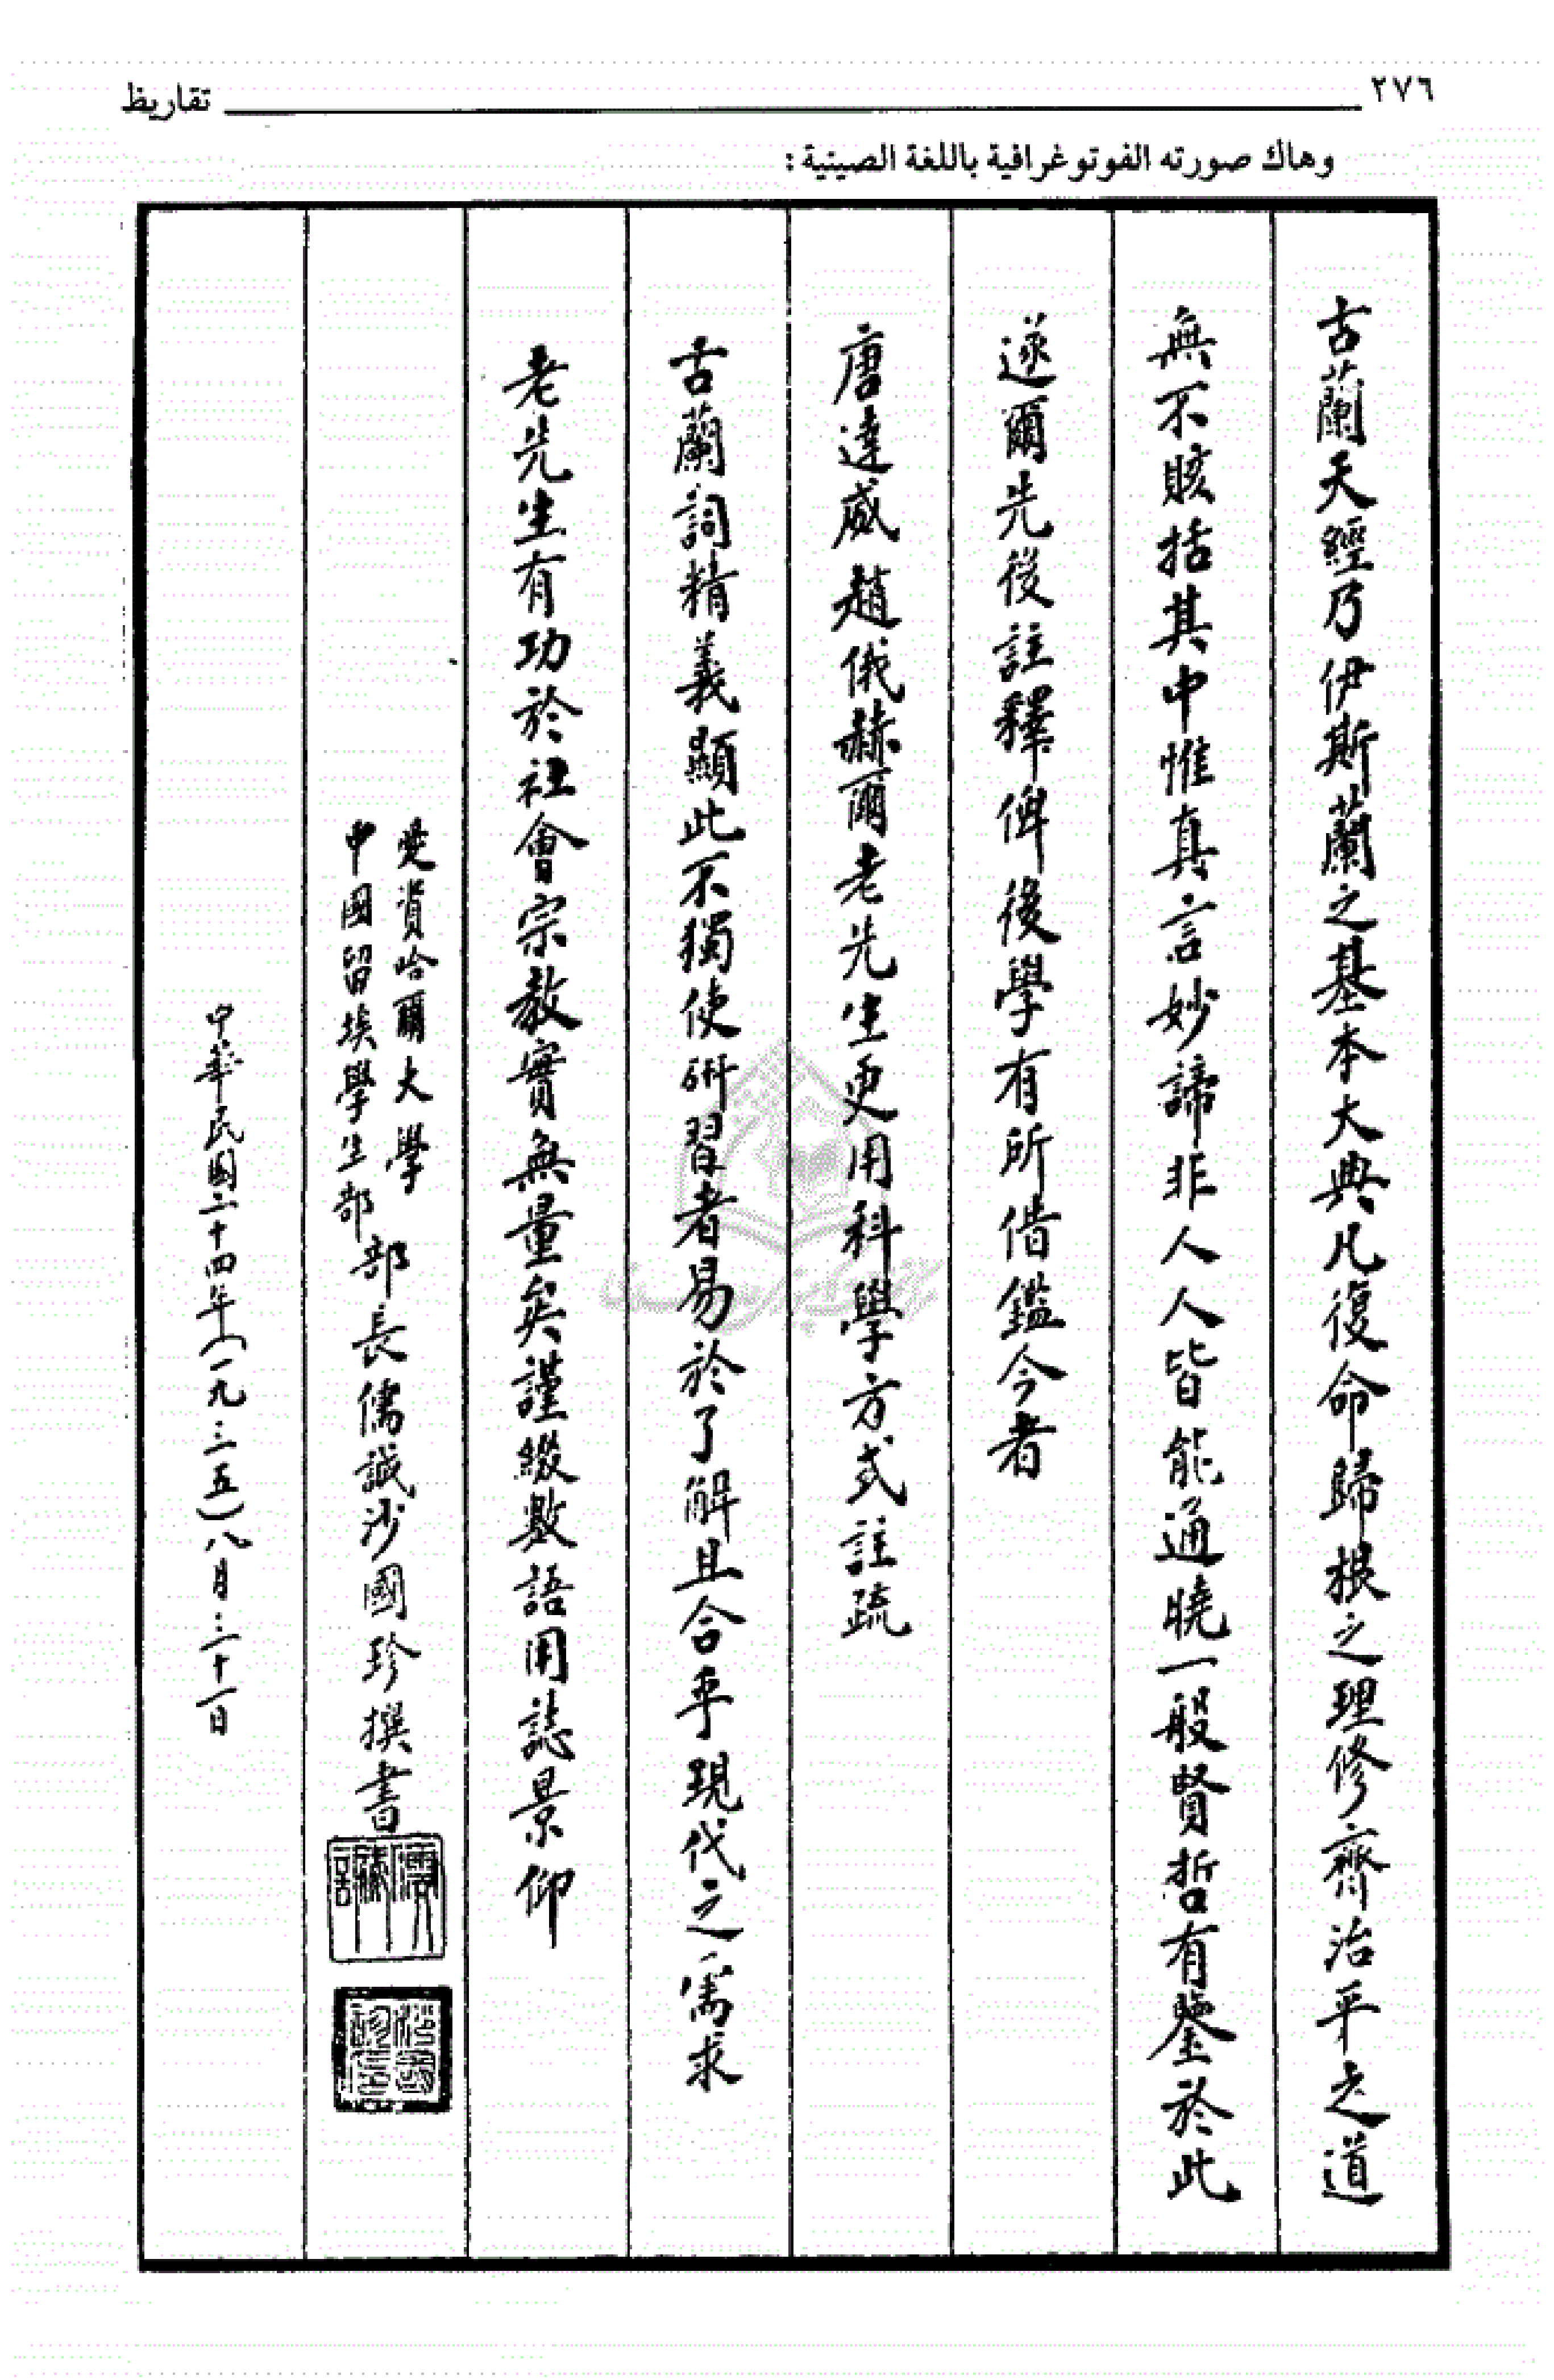 ٢٧٦
تقاريظ
وهاك صورته الفوتوغرافية باللغة الصينية :
古蘭天經乃伊斯蘭之基本大典凡復命歸根之理修齊治平之道
無不賅括其中惟真言妙諦非人人皆能通曉一般賢哲有鑒於此
遂爾先後註釋俾後學有所借鑑今者
唐達威趙俄赫爾老先生更用科學方式註疏
古蘭詞精義顯此不獨使研習者易於了解且合乎現代之需求
老先生有功於社會宗教實無量矣謹綴數語用誌景仰
愛資哈爾大學
中國留埃學生部
部長儒誠沙國珍撰書
中華民國二十四年(一九三五)八月三十一日